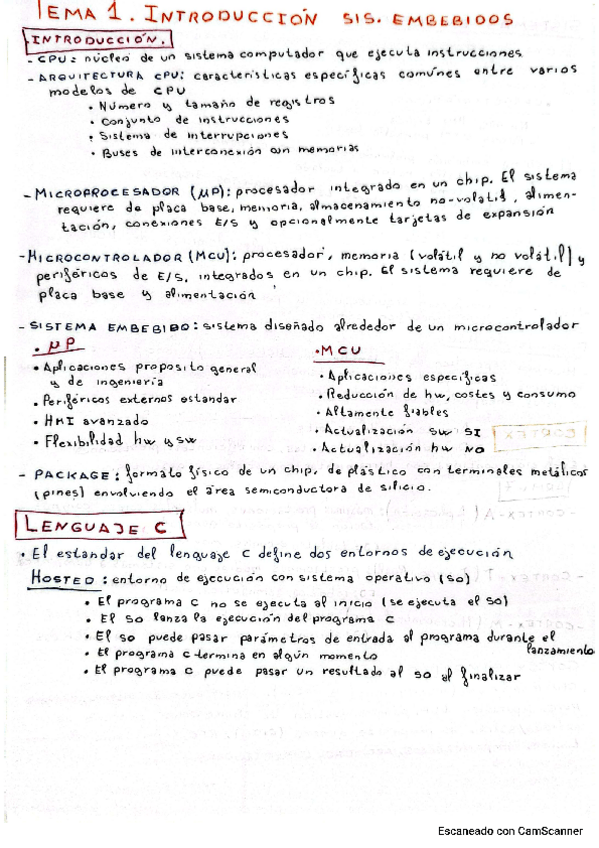 TEMA 1. INTRODUCCIÓN SIS. EMBEBIDOS
INTRODUCCIÓN.
- CPU: núcleo de un sistema computador que ejecuta instrucciones
- ARQUITECTURA CPU: características específicas comúnes entre varios
modelos de CPU
• Número y tamaño de registros
• Conjunto de instrucciones
• Sistema de interrupciones
• Buses de interconexión con memorias
- MICROPROCESADOR (μP): procesador integrado en un chip. El sistema
requiere de placa base, memoria, almacenamiento no-volatil, alimen-
tación, conexiones E/S y opcionalmente tarjetas de expansión
- MICROCONTROLADOR (MCU): procesador, memoria (volátil y no volátil) y
periféricos de E/S, integrados en un chip. El sistema requiere de
placa base y alimentación
- SISTEMA EMBEBIDO: sistema diseñado alrededor de un microcontrolador
• μP
• Aplicaciones proposito general
y de ingeniería
• Periféricos externos estandar
• HMI avanzado
• Flexibilidad hw y sw
• MCU
• Aplicaciones específicas
• Reducción de hw, costes y consumo
• Altamente fiables
• Actualización sw SI
• Actualización hw NO
- PACKAGE: formato físico de un chip, de plástico con terminales metálicos
(pines) envolviendo el área semiconductora de silicio.
LENGUAJE C
• El estandar del lenguaje C define dos entornos de ejecución
HOSTED: entorno de ejecución con sistema operativo (SO)
• El programa C no se ejecuta al inicio (se ejecuta el SO)
• El SO lanza la ejecución del programa C
• El SO puede pasar parámetros de entrada al programa durante el
lanzamiento
• El programa C termina en algún momento
• El programa C puede pasar un resultado al SO al finalizar
Escaneado con CamScanner